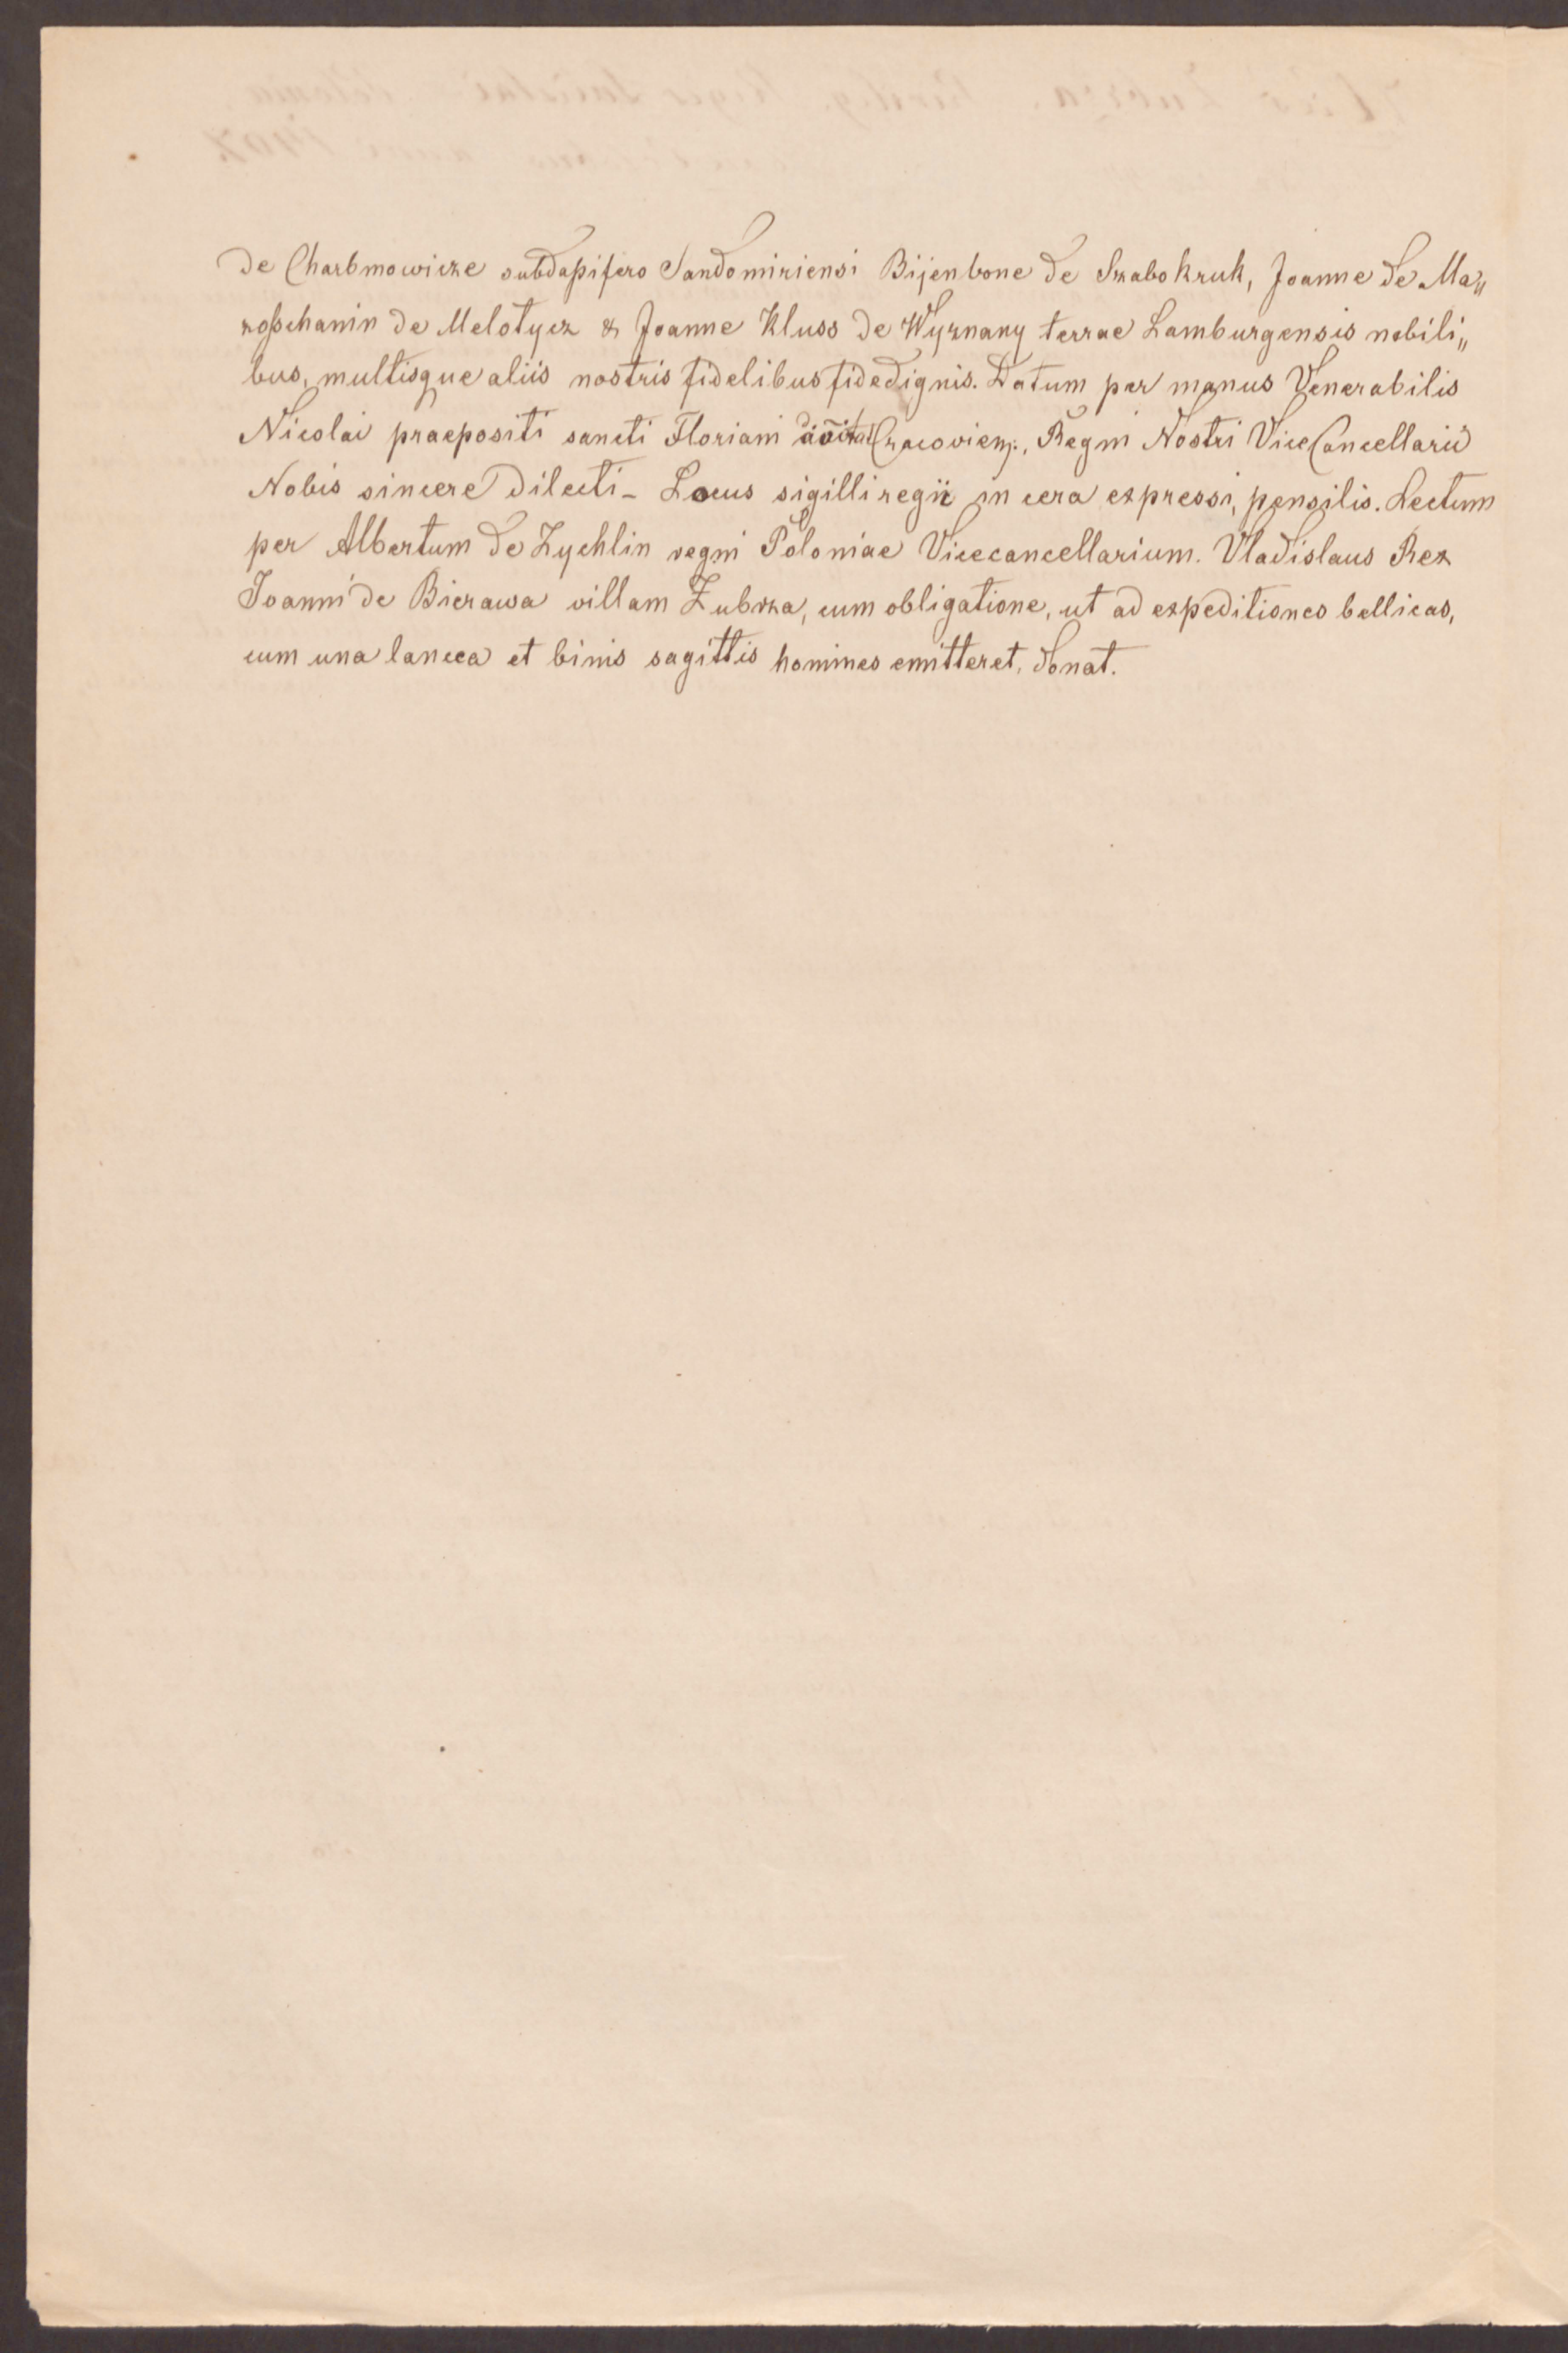 de Charbmowicze subdapifero Sandomiriensi Bijenbone de Szabokruk, Joanne de Ma„
roſschanin de Melotycz & Joanne Kluss de Wyznany terrae Lamburgensis nobili„
bus, multisque aliis nostris fidelibus fidedignis. Datum per manus Venerabilis
Nicolai praepositi sancti Floriani Cracovien., Regni Nostri ViceCancellarii
Nobis sincere dilecti_ Locus sigilli regii in cera expressi, pensilis. Lectum
per Albertum de Zychlin regni Poloniae Vicecancellarium. Vladislaus Rex
Joanni de Bierawa villam Zubrza, cum obligatione, ut ad expeditiones bellicas,
cum una lancea et binis sagittis homines emitteret, donat.